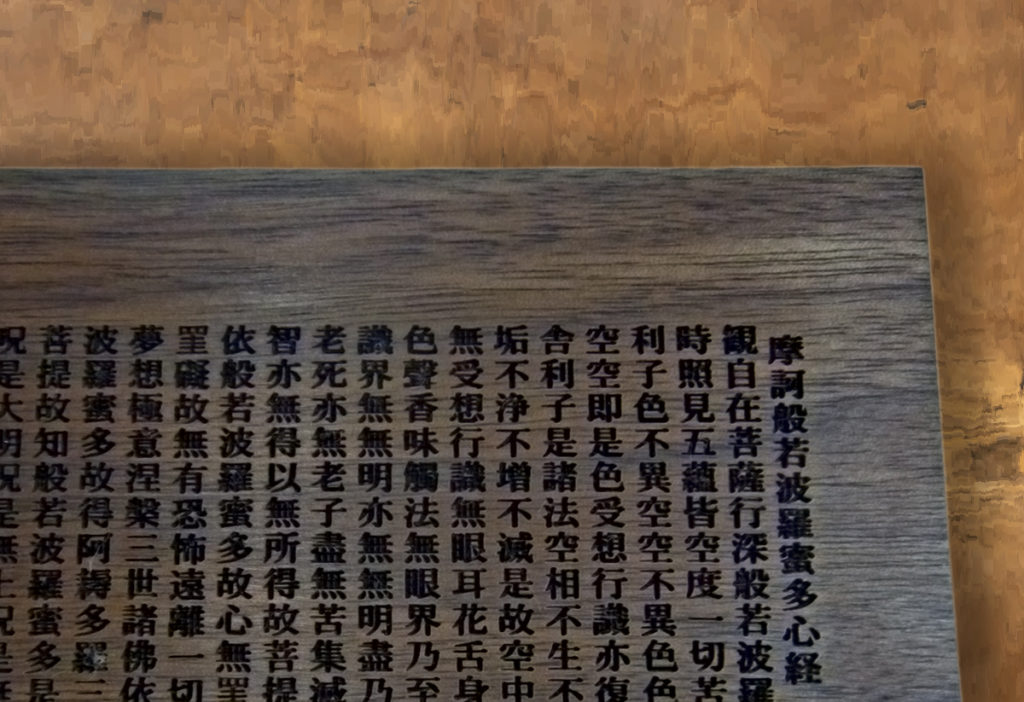 摩訶般若波羅蜜多心経
観自在菩薩行深般若波羅
時照見五蘊皆空度一切苦
利子色不異空空不異色色
空空即是色受想行識亦復
舎利子是諸法空相不生不
垢不浄不増不滅是故空中
無受想行識無眼耳花舌身
色聲香味觸法無眼界乃至
識界無無明亦無無明盡乃
老死亦無老子盡無苦集滅
智亦無得以無所得故菩提
依般若波羅蜜多故心無罣
罣礙故無有恐怖遠離一切
夢想極意涅槃三世諸佛依
波羅蜜多故得阿耨多羅三
菩提故知般若波羅蜜多是
呪是大明呪是無上呪是無